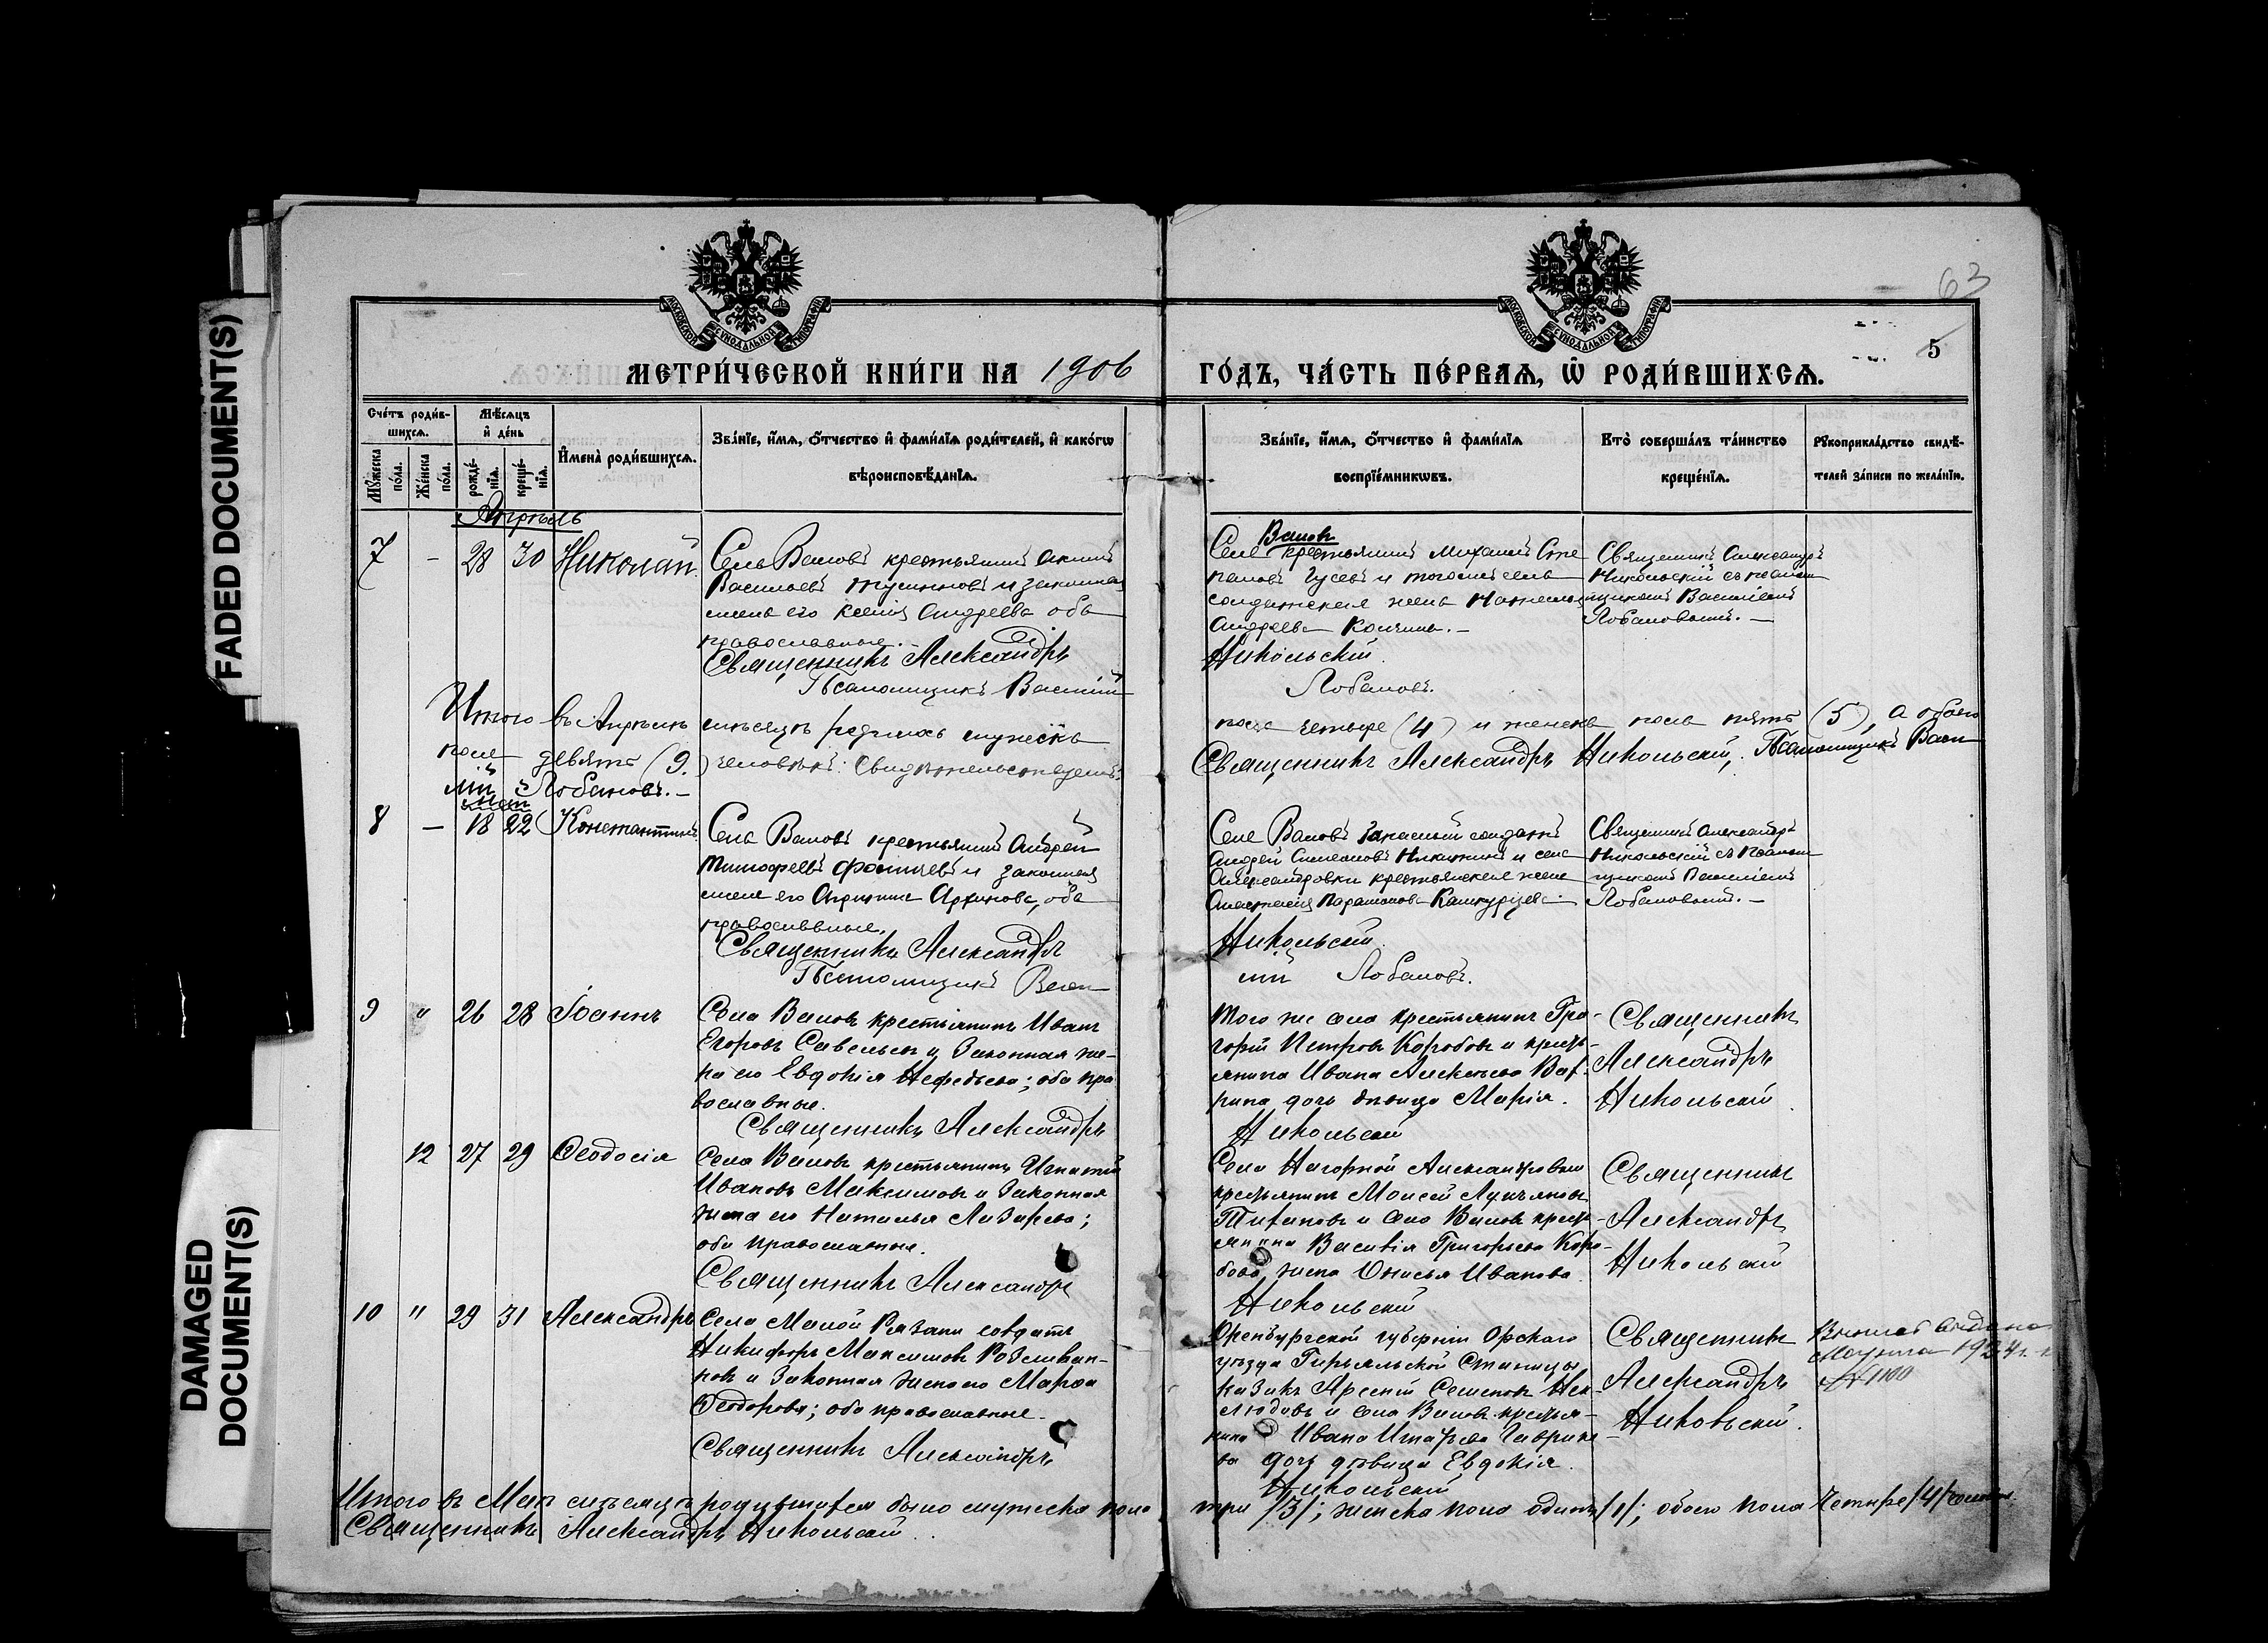 FADED DOCUMENT(S)
DAMAGED
DOCUMENT(S)
63
5
МОСКОВСКОЙ СѴНОДАЛЬНОЙ ТИПОГРАФІИ
МОСКОВСКОЙ СѴНОДАЛЬНОЙ ТИПОГРАФІИ
МЕТРИ́ЧЕСКОЙ КНИ́ГИ НА 1906 ГО́ДЪ, ЧА́СТЬ ПЕ́РВАѦ, Ѡ҆ РОДИ́ВШИХСѦ.
Сче́тъ роди́в-
шихсѧ.
Мѣ́сѧцъ
и҆ де́нь
Мꙋ́жеска
по́ла.
Же́нска
по́ла.
рожде́-
нїѧ.
креще́-
нїѧ.
И҆мена̀ роди́вшихсѧ.
Зва́нїе, и҆́мѧ, ѻ҆́тчество и҆ фами́лїѧ роди́телей, и҆ како́гѡ
вѣроисповѣ́данїѧ.
Зва́нїе, и҆́мѧ, ѻ҆́тчество и҆ фами́лїѧ
воспрїе́мникѡвъ.
Кто̀ соверша́лъ та́инство
креще́нїѧ.
Рꙋкоприкла́дство свидѣ́-
телей за́писи по жела́нїю.
Апрѣль
7 — 28 30 Николай
Села Валовъ крестьянинъ Акимъ
Васильевъ и законная
жена его Ксенія Андреева оба
православные.—
Священникъ Александръ
Псаломщикъ Василій
Валовъ
Села крестьянинъ Михаилъ Сте
пановъ Гусевъ и тогоже села
солдатская жена
Андреева
Никольскій.
Лобановъ.
Священникъ Александръ
Никольскій съ псалом
щикомъ Василіемъ
Лобановымъ.—
Итого въ Апрѣлѣ мѣсяцѣ родилось мужеска пола четыре (4) и женска пола пять (5), а обоего
пола девять (9.) человѣкъ. Священникъ Александръ Никольскій, Псаломщикъ Васи
лій Лобановъ.—
Май
8 — 18 22 Константинъ
Села Валовъ крестьянинъ Андрей
Тимофеевъ и законная
жена его Архипова, оба
православные.
Священникъ Александръ
Псаломщикъ Васи
Села Валовъ запасный солдатъ
Андрей Симеоновъ Никитинъ и села
Александровки крестьянская жена
Анастасія Парамонова
Никольскій.
лій Лобановъ.
Священникъ Александръ
Никольскій съ псалом
щикомъ Василіемъ
Лобановымъ.—
9 " 26 28 Іоаннъ
Села Валовъ крестьянинъ Иванъ
Егоровъ Савельевъ и законная же-
на его Евдокія Нефедьева; оба пра
вославные.
Священникъ Александръ
Того же села крестьянинъ Гри-
горій Петровъ Коробовъ и кресть-
янина Ивана Алексѣева
дочь дѣвица Марія.
Никольскій
Священникъ
Александръ
Никольскій.
12 27 29 Ѳеодосія
Села Валовъ крестьянинъ Игнатій
Ивановъ Максимовъ и законная
жена его Наталья Лазарева;
оба православные.
Священникъ Александръ
Села Нагорной Александровки
крестьянинъ Моисей Лукьяновъ
и села Валовъ кресть-
янина Василія Григорьева Коро-
бова жена Иванова.
Никольскій
Священникъ
Александръ
Никольскій
10 " 29 31 Александръ
Села Малой Рязани солдатъ
Никифоръ Максимовъ
и законная жена его Марѳа
Ѳеодорова; оба православные.
Священникъ Александръ
Оренбургской губерніи Орскаго
уѣзда Гирьяльской Станицы
казакъ Арсеній Семеновъ Нех-
людовъ и села Валовъ кресть-
янина Ивана
дочь дѣвица Евдокія.
Никольскій
Священникъ
Александръ
Никольскій.
1924 г.
№ 1100
Итого въ Маѣ мѣсяцѣ родившихся было мужеска пола три /3/; женска пола одинъ /1/; обоего пола четыре /4/
Священникъ Александръ Никольскій.